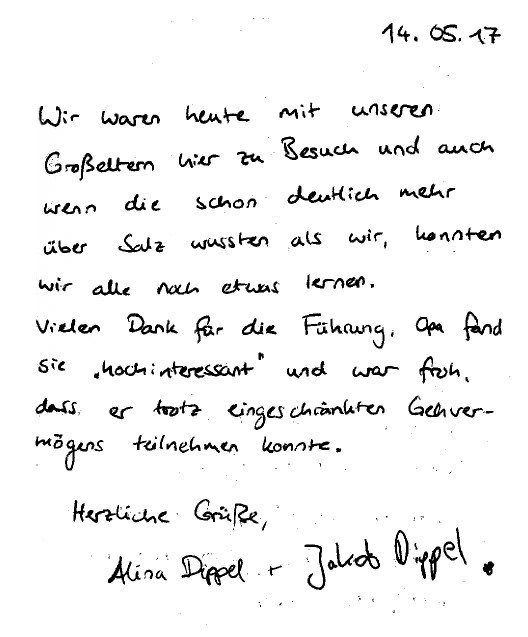 14. 05. 17
Wir waren heute mit unseren
Großeltern hier zu Besuch und auch
wenn die schon deutlich mehr
über Salz wussten als wir, konnten
wir alle noch etwas lernen.
Vielen Dank für die Führung, Opa fand
sie „hochinteressant" und war froh,
dass er trotz eingeschränkten Gehver-
mögens teilnehmen konnte.
Herzliche Grüße,
Alina Dippel + Jakob Dippel.